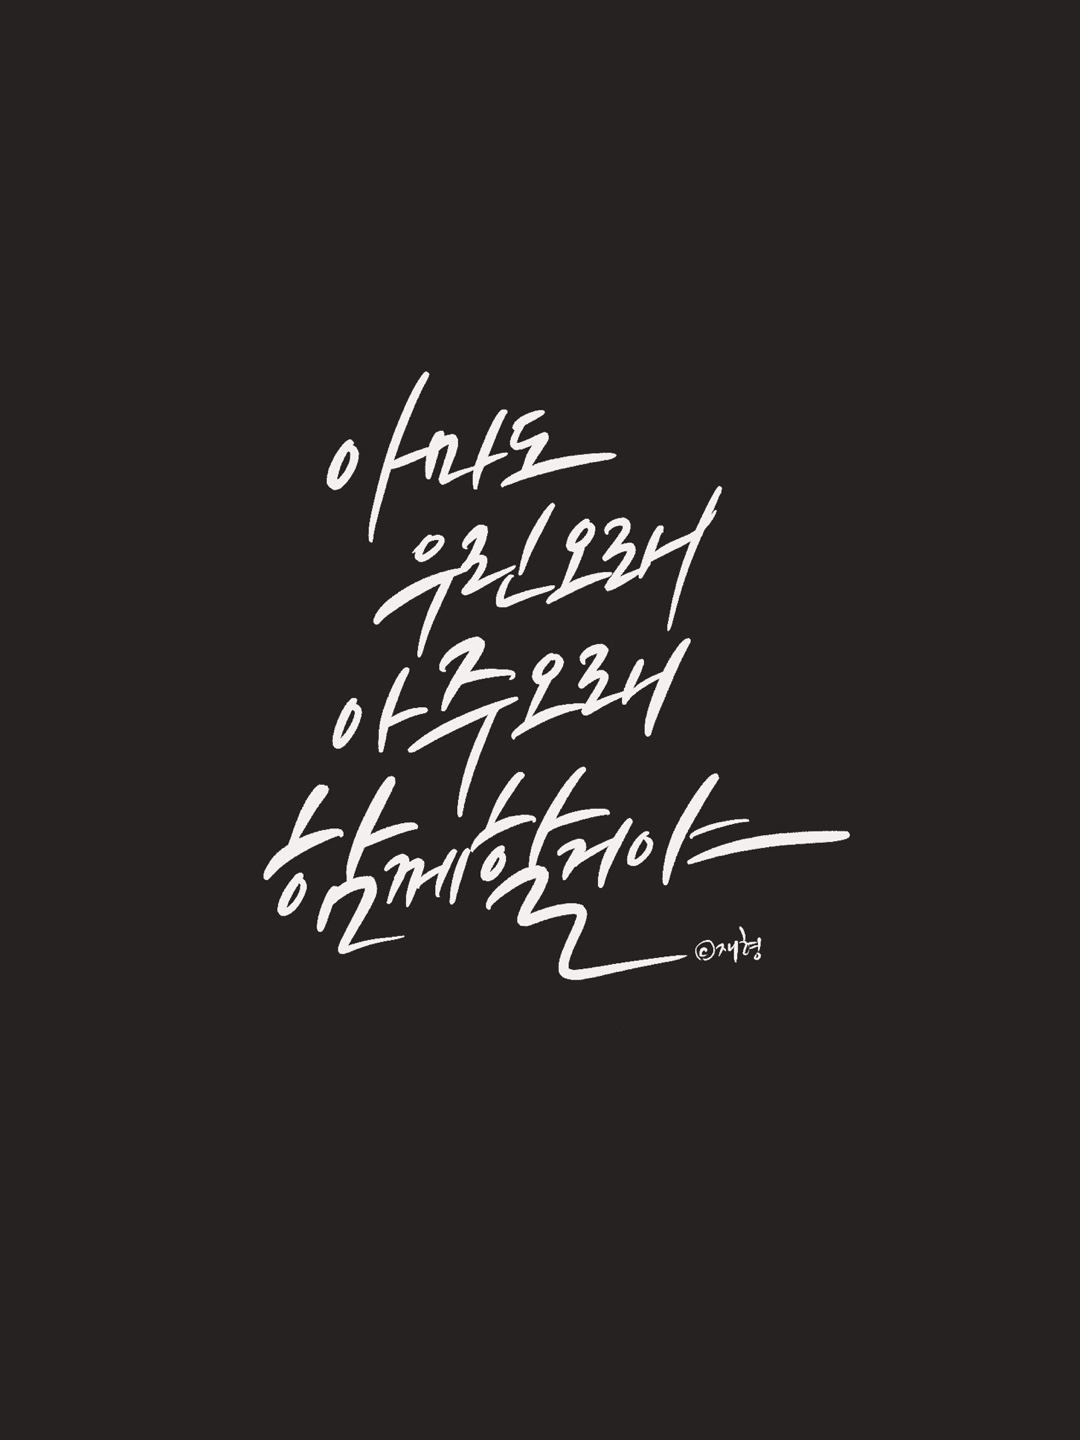 아마도
우린 오래
아주 오래
함께할거야
©재형